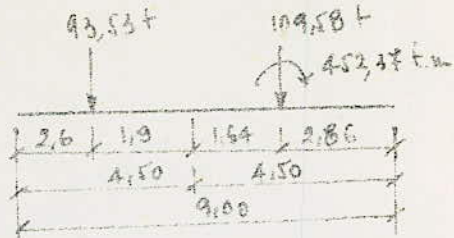 93,53 t 109,58 t
452,37 t.m
2,6 1,9 1,64 2,86
4,50 4,50
9,00